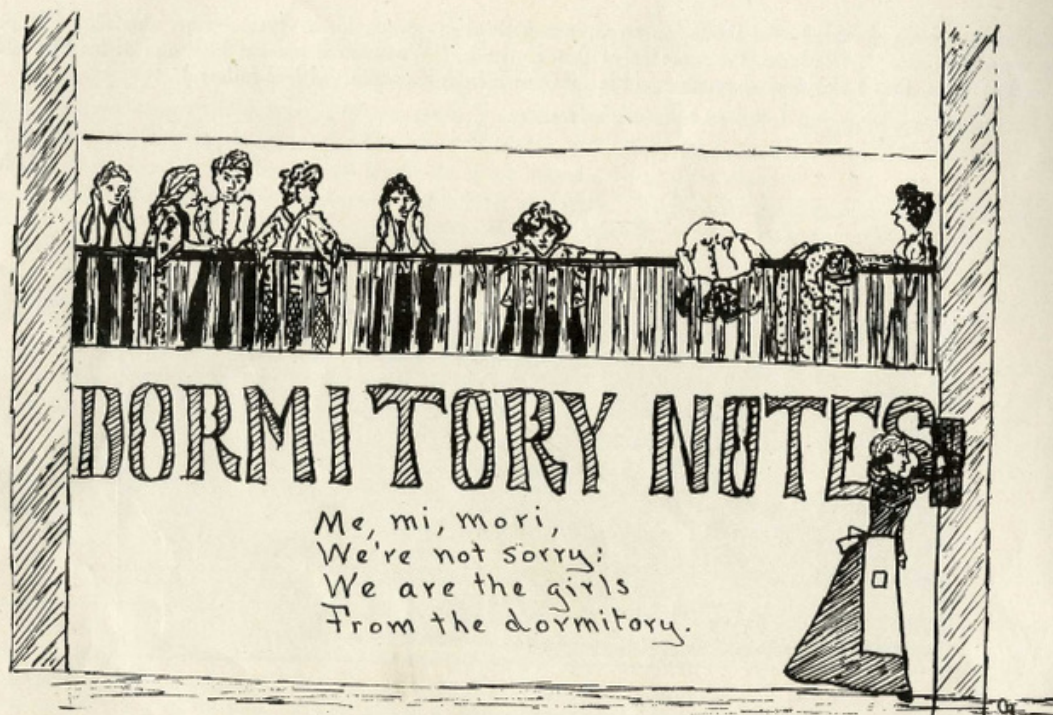 DORMITORY NOTES
Me, mi, mori,
We're not sorry:
We are the girls
From the dormitory.